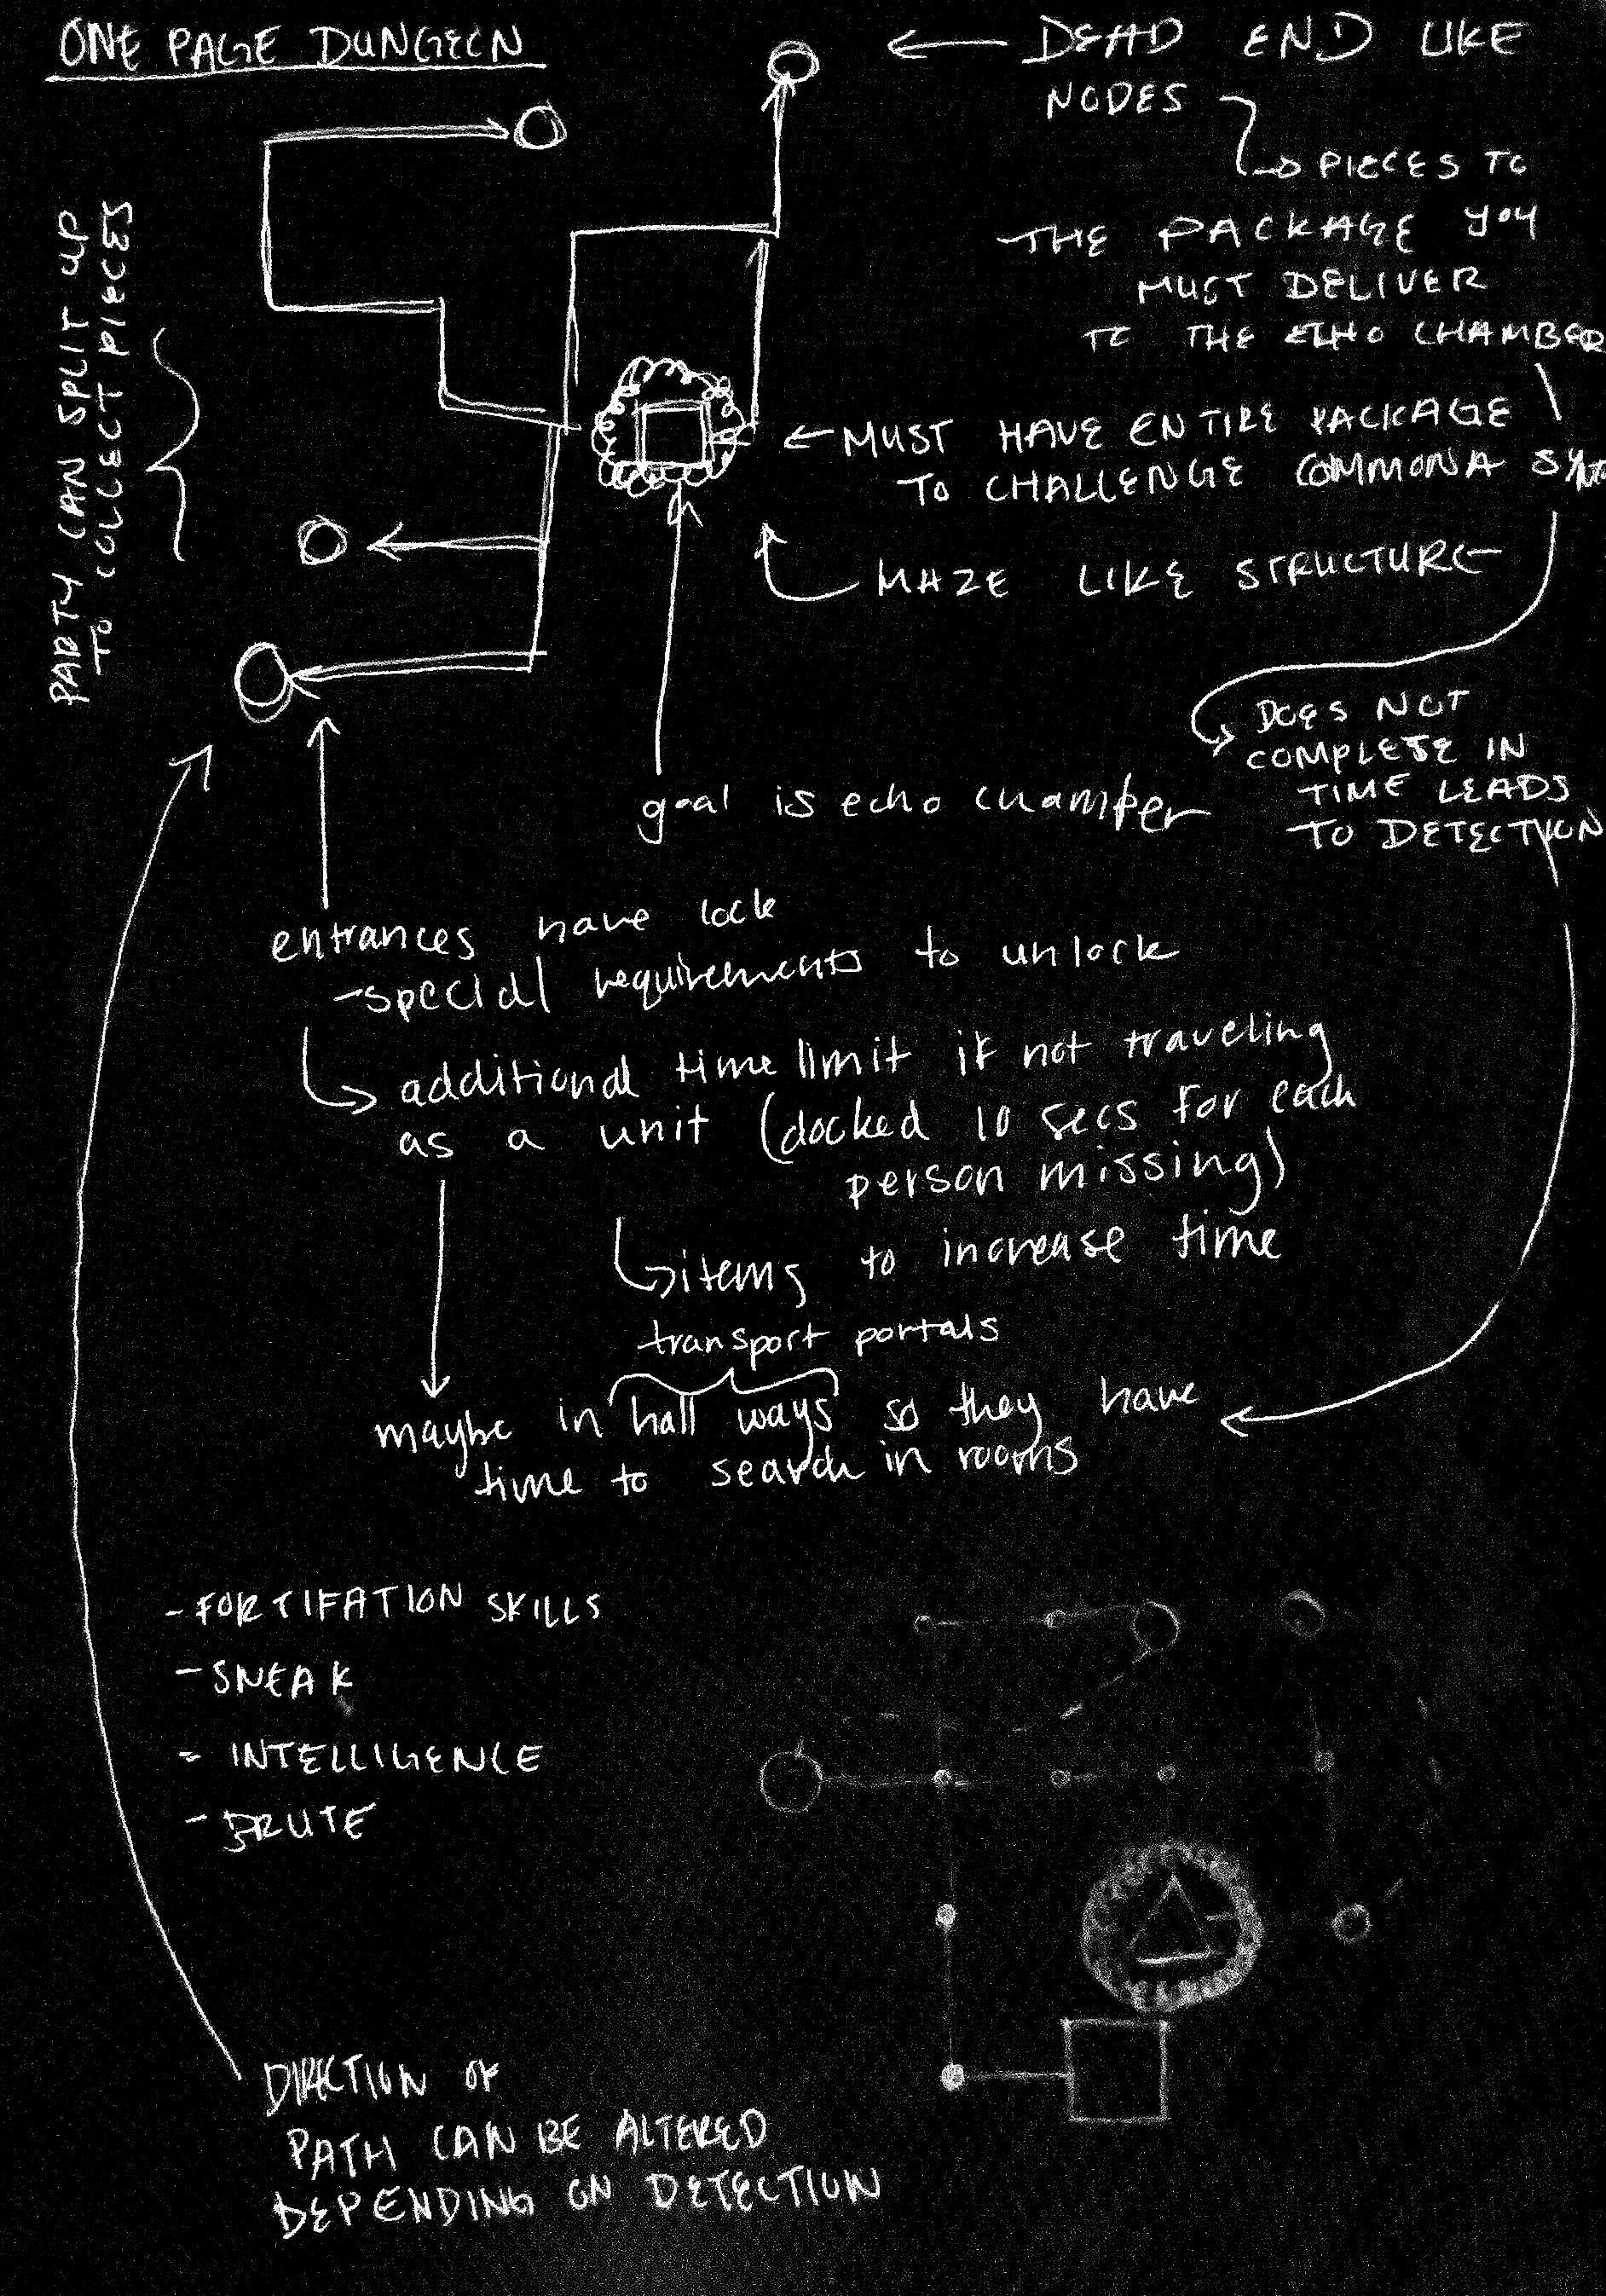 ONE PAGE DUNGEON
DEAD END LIKE
NODES
PIECES TO
THE PACKAGE YOU
MUST DELIVER
TO THE ECHO CHAMBER
MUST HAVE ENTIRE PACKAGE
TO CHALLENGE COMMONA
MAZE LIKE STRUCTURE
PARTY CAN SPLIT UP
TO COLLECT PIECES
DOES NOT
COMPLETE IN
TIME LEADS
TO DETECTION
goal is echo chamber
entrances have lock
-special requirements to unlock
additional time limit if not traveling
as a unit (docked 10 secs for each
person missing)
items to increase time
transport portals
maybe in hall ways so they have
time to search in rooms
- FORTIFATION SKILLS
- SNEAK
- INTELLIGENCE
- BRUTE
DIRECTION OF
PATH CAN BE ALTERED
DEPENDING ON DETECTION